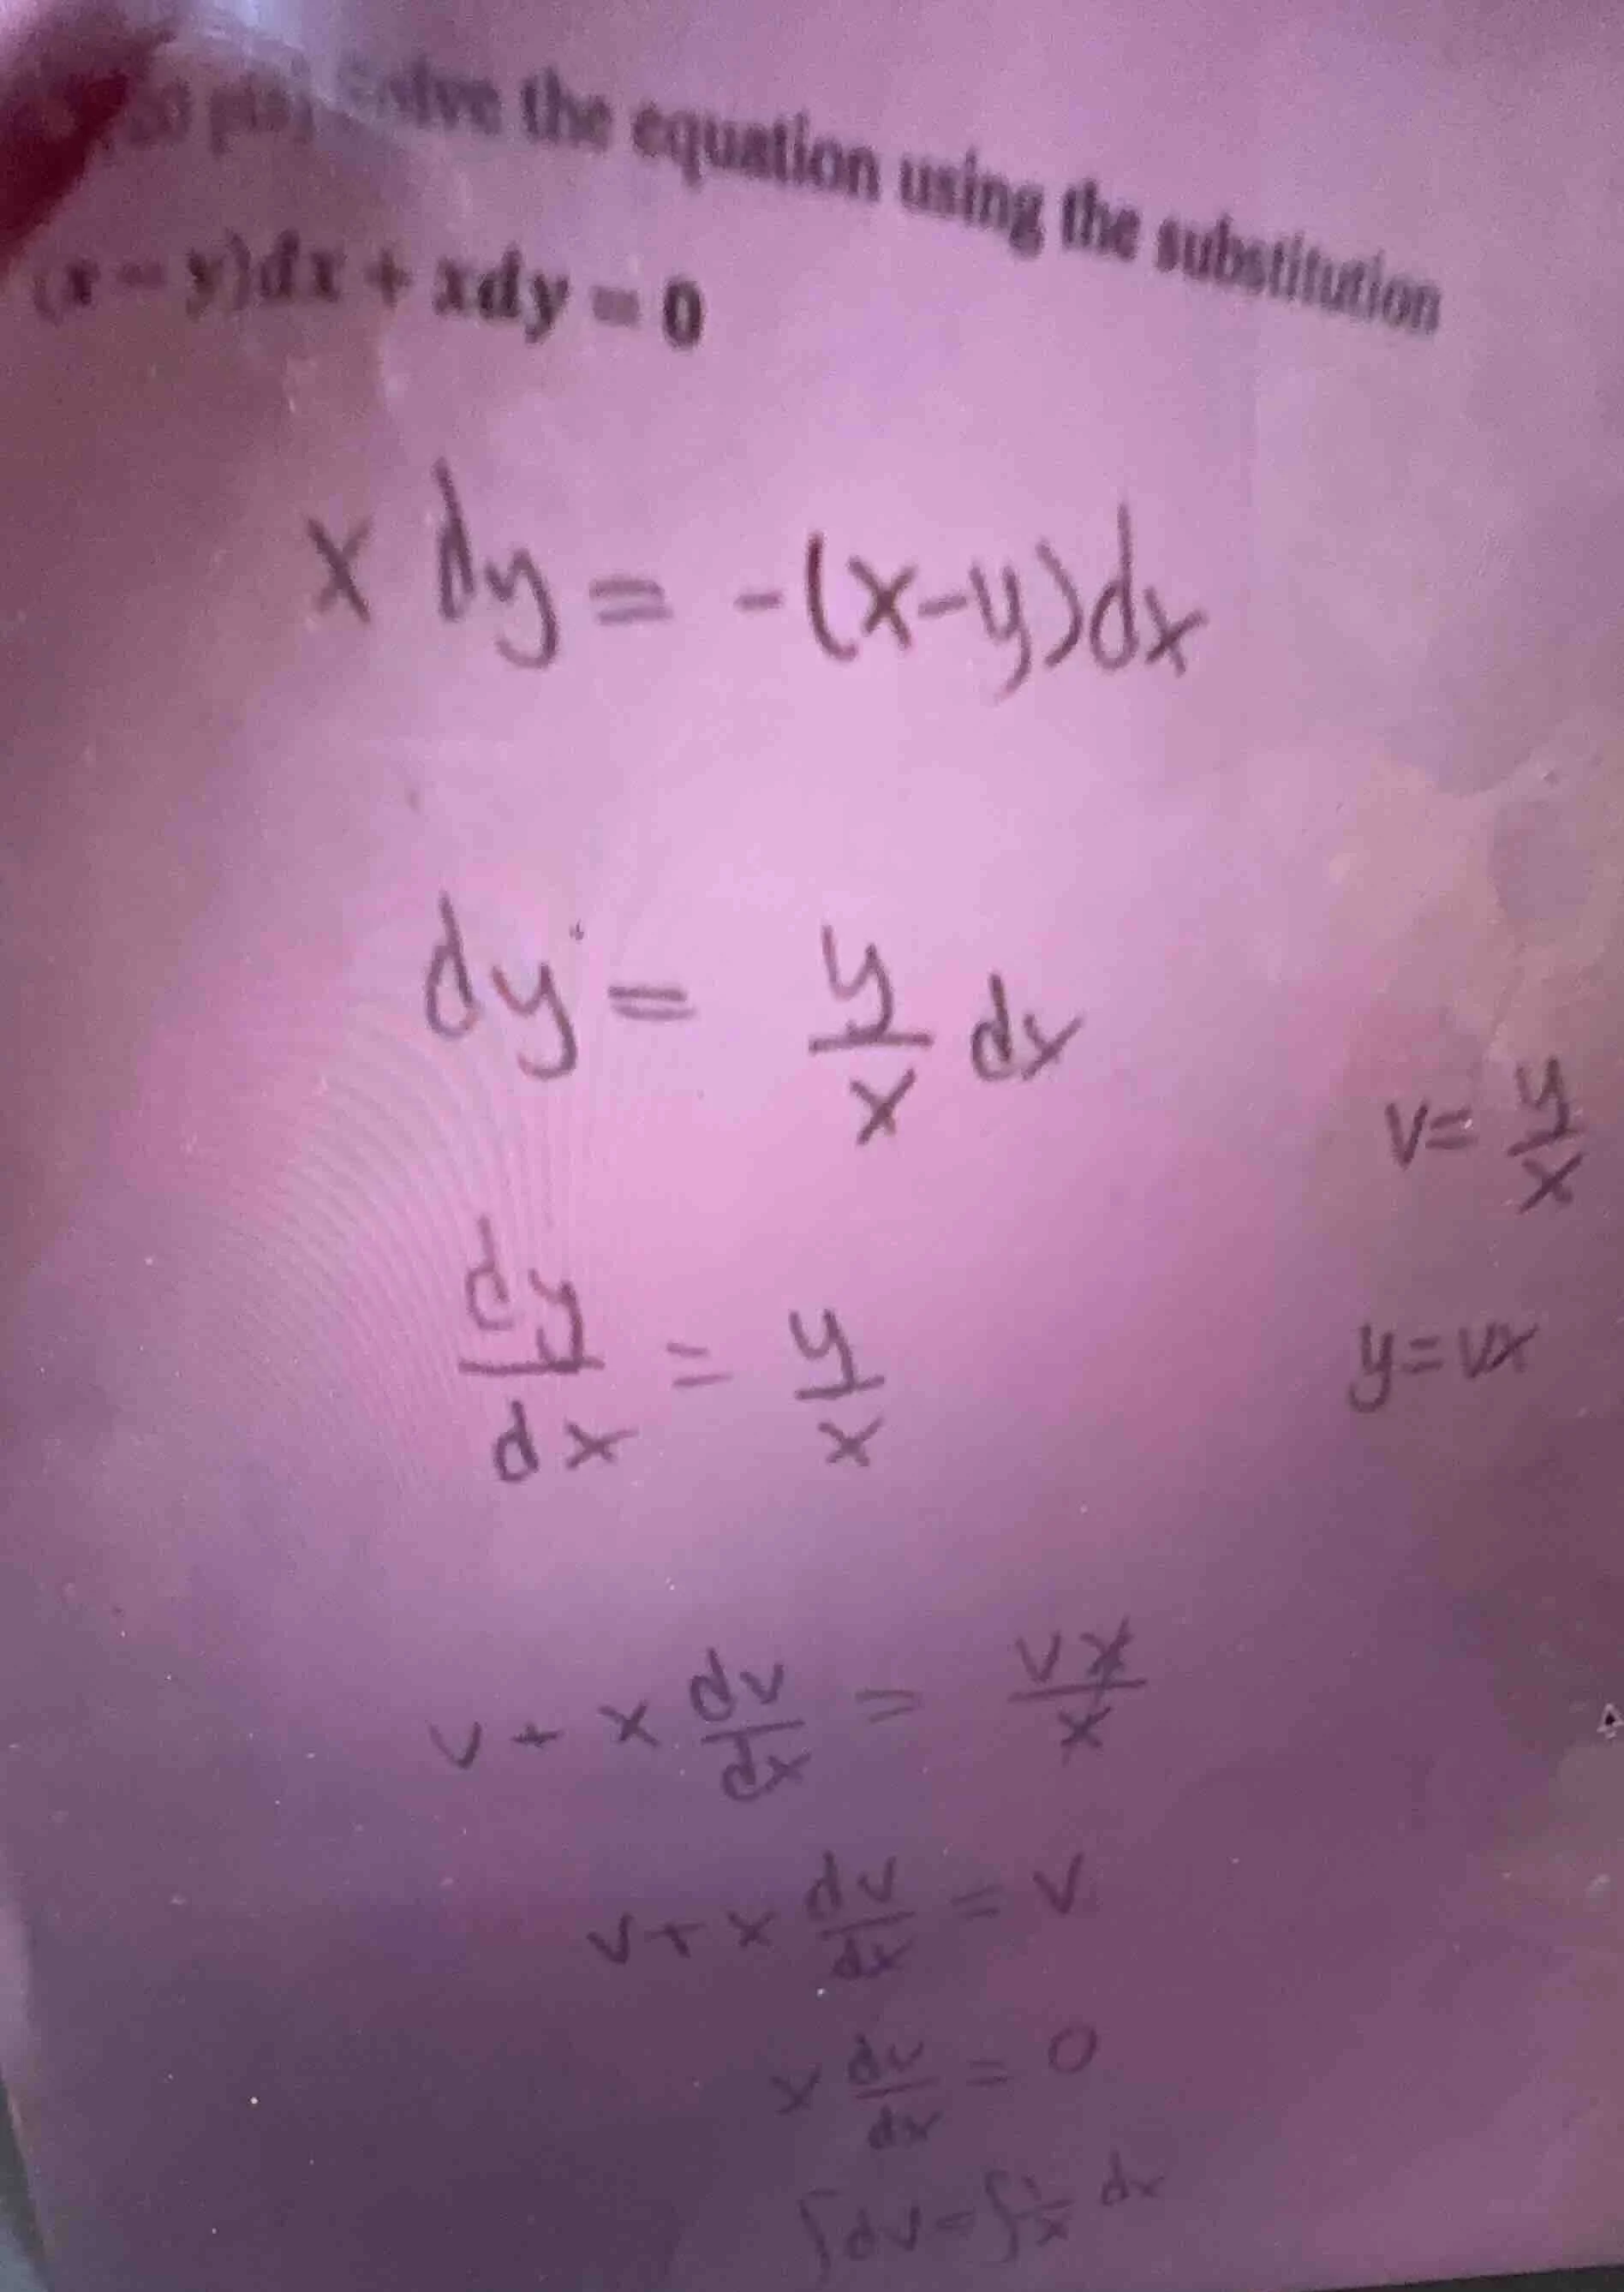 solve the equation using the substitution
(x − y)dx + xdy = 0
x dy = -(x-y)dx
dy = y/x dx
v = y/x
dy/dx = y/x
y = vx
v + x dv/dx = vx/x
v + x dv/dx = v
x dv/dx = 0
∫dv = ∫1/x dx